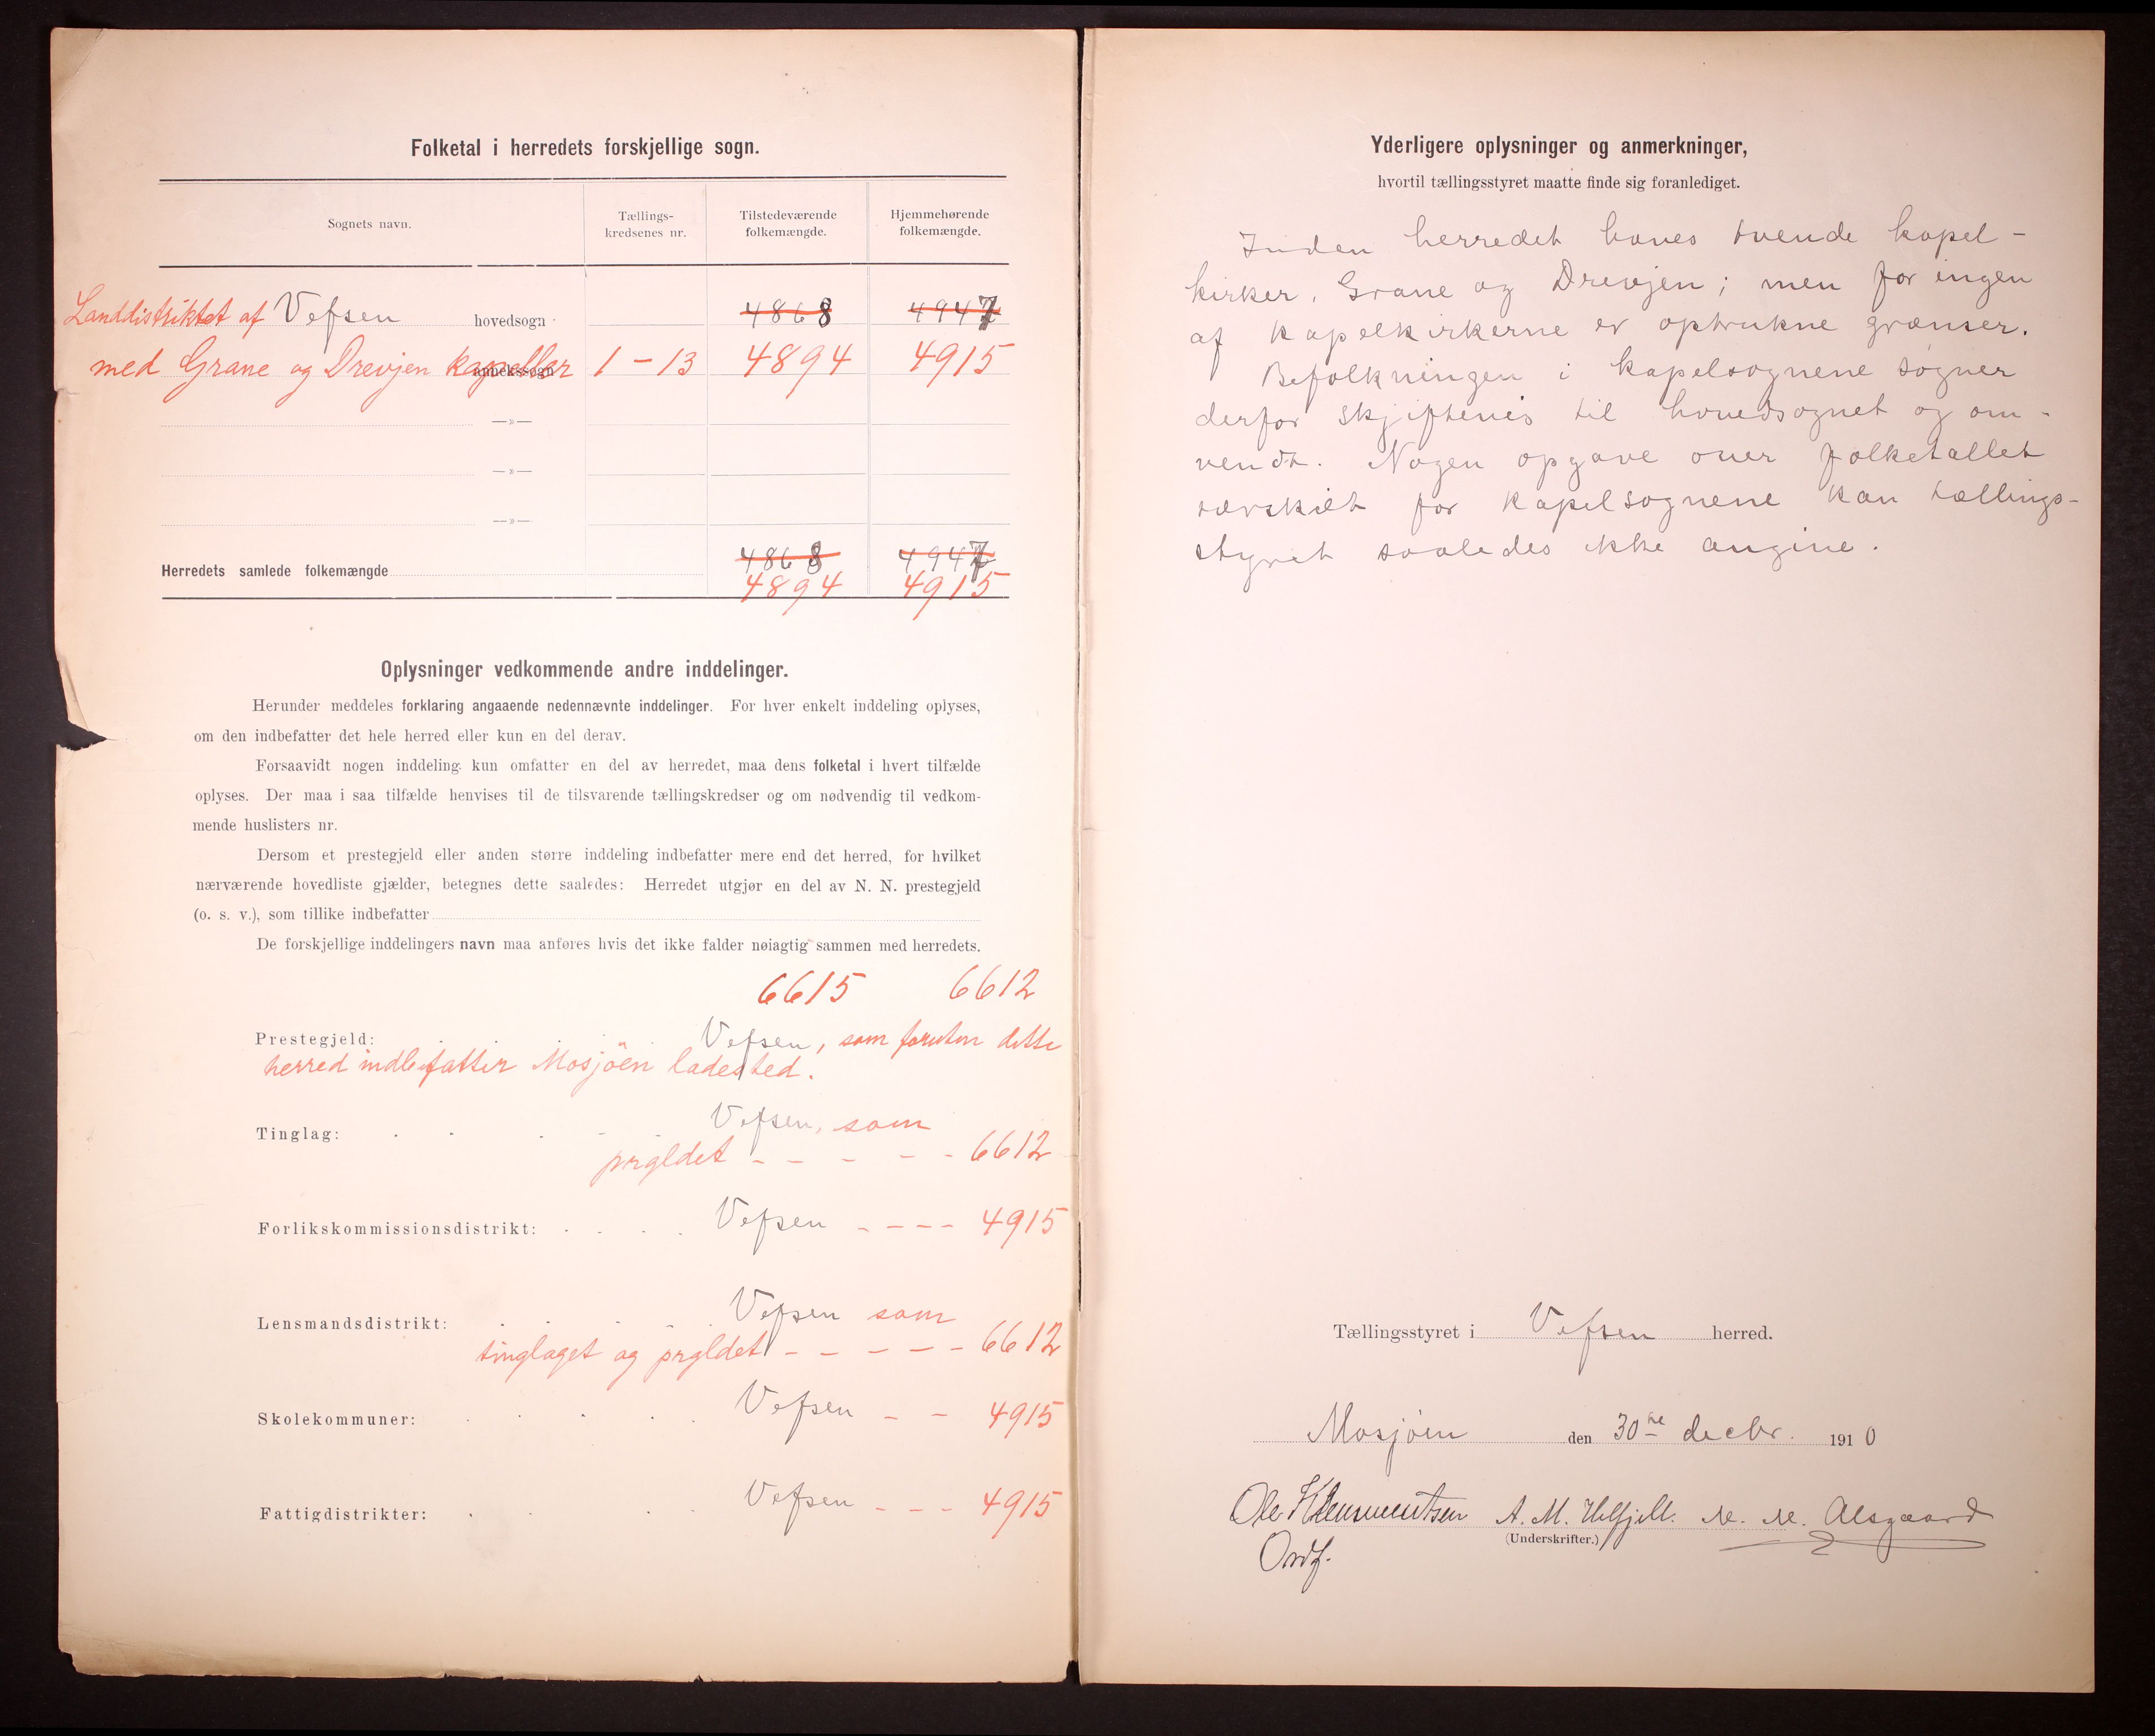 Folketal i herredets forskjellige sogn.
Sognets navn.
Tællings-
kredsenes nr.
Tilstedeværende
folkemængde.
Hjemmehørende
folkemængde.
Landdistriktet af Vefsen hovedsogn 4868 4947
med Grane og Drevjen kapeller annekssogn 1 – 13 4894 4915
—»—
—»—
—»—
4868 4947
Herredets samlede folkemængde
4894 4915
Oplysninger vedkommende andre inddelinger.
Herunder meddeles forklaring angaaende nedennævnte inddelinger. For hver enkelt inddeling oplyses,
om den indbefatter det hele herred eller kun en del derav.
Forsaavidt nogen inddeling kun omfatter en del av herredet, maa dens folketal i hvert tilfælde
oplyses. Der maa i saa tilfælde henvises til de tilsvarende tællingskredser og om nødvendig til vedkom-
mende huslisters nr.
Dersom et prestegjeld eller anden større inddeling indbefatter mere end det herred, for hvilket
nærværende hovedliste gjælder, betegnes dette saaledes: Herredet utgjør en del av N. N. prestegjeld
(o. s. v.), som tillike indbefatter
De forskjellige inddelingers navn maa anføres hvis det ikke falder nøiagtig sammen med herredets.
6615 6612
Prestegjeld: Vefsen, som foruten dette
herred indbefatter Mosjöen ladested.
Tinglag: Vefsen, som
prgldet – – – – – 6612
Forlikskommissionsdistrikt: Vefsen – – – – 4915
Lensmandsdistrikt: Vefsen som
tinglaget og prgldet – – – – – 6612
Skolekommuner: Vefsen – – 4915
Fattigdistrikter: Vefsen – – – 4915
Yderligere oplysninger og anmerkninger,
hvortil tællingsstyret maatte finde sig foranlediget.
Inden herredet haves tvende kapel-
kirker, Grane og Drevjen; men for ingen
af kapelkirkerne er optrukne grænser.
Befolkningen i kapelsognene søgner
derfor skjiftevis til hovedsognet og om-
vendt. Nogen opgave over folketallet
særskilt for kapelsognene kan tællings-
styret saaledes ikke angive.
Tællingsstyret i Vefsen herred.
Mosjöen den 30te decbr. 1910
Ole Klemmentsen A. M. Helfjell. M. M. Alsgaard
(Underskrifter.)
Ordf.